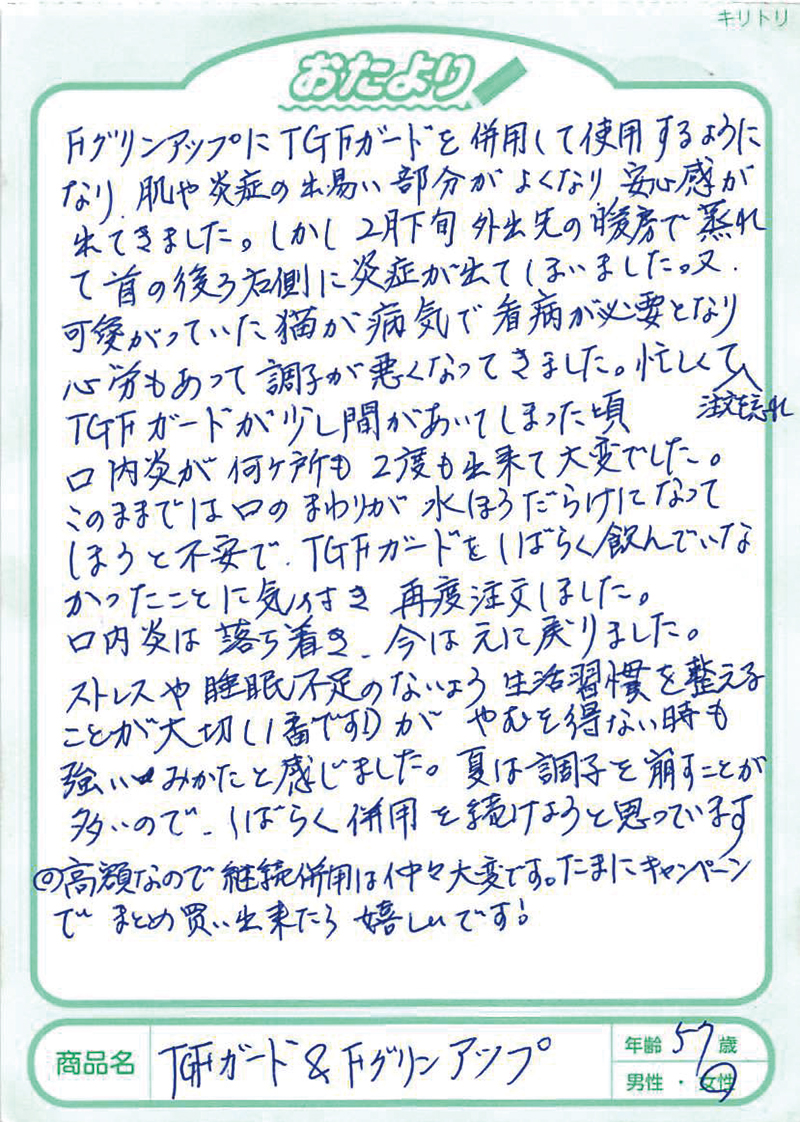 キリトリ
おたより
FグリンアップにTGFガードを併用して使用するように
なり、肌や炎症の出易い部分がよくなり安心感が
出てきました。しかし2月下旬外出先の暖房で蒸れ
て首の後ろ右側に炎症が出てしまいました。又、
可愛がっていた猫が病気で看病が必要となり
心労もあって調子が悪くなってきました。忙しくて
注文を忘れ
TGFガードが少し間があいてしまった頃
口内炎が何ヶ所も2度も出来て大変でした。
このままでは口のまわりが水ほうだらけになって
しまうと不安で、TGFガードをしばらく飲んでいな
かったことに気付き再度注文しました。
口内炎は落ち着き、今は元に戻りました。
ストレスや睡眠不足のないよう生活習慣を整える
ことが大切(1番です!)がやむを得ない時も
強いみかたと感じました。夏は調子を崩すことが
多いので、しばらく併用を続けようと思っています
◎高額なので継続併用は仲々大変です。たまにキャンペーン
でまとめ買い出来たら嬉しいです!
商品名 TGFガード&Fグリンアップ
年齢 57歳
男性・女性